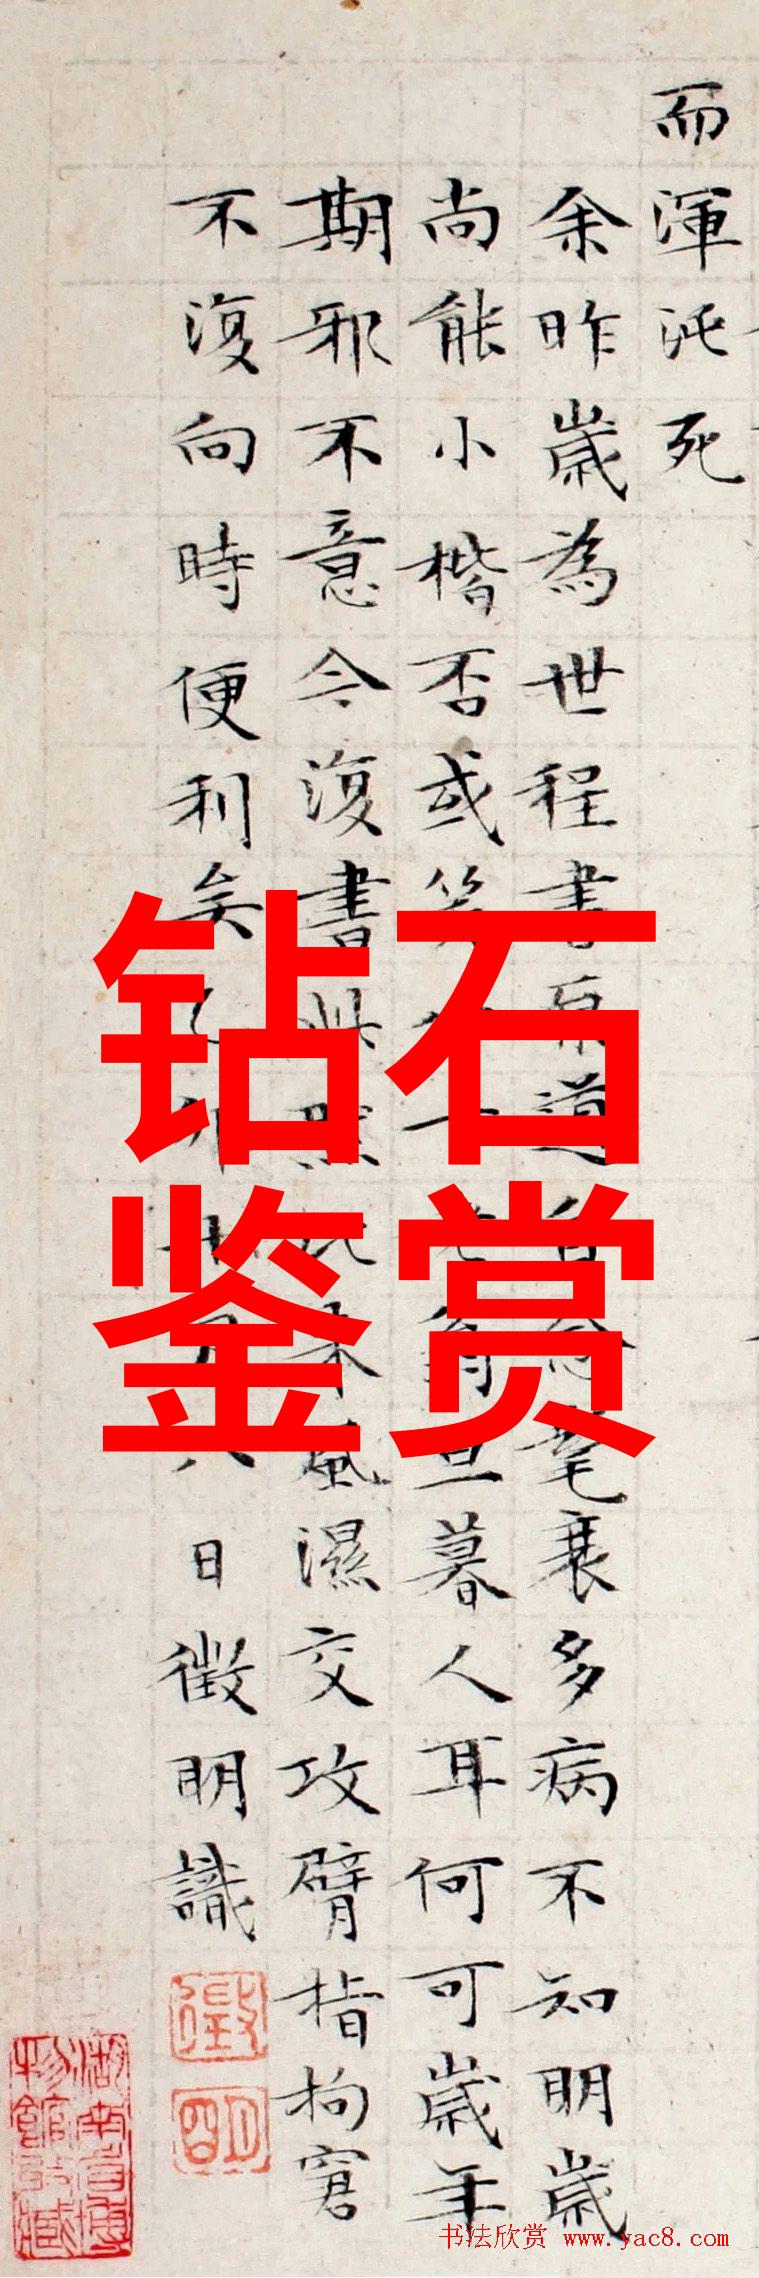 而渾沌死
余昨歲為世程書道耄衰多病不知明歲
尚能小楷否或笑旦暮人耳何可歲年
期邪不意今復書此風濕交攻臂指拘窘
不復向時便利矣八日徵明識
徵
明
钻石
鉴赏
书法欣赏 www.yac8.com